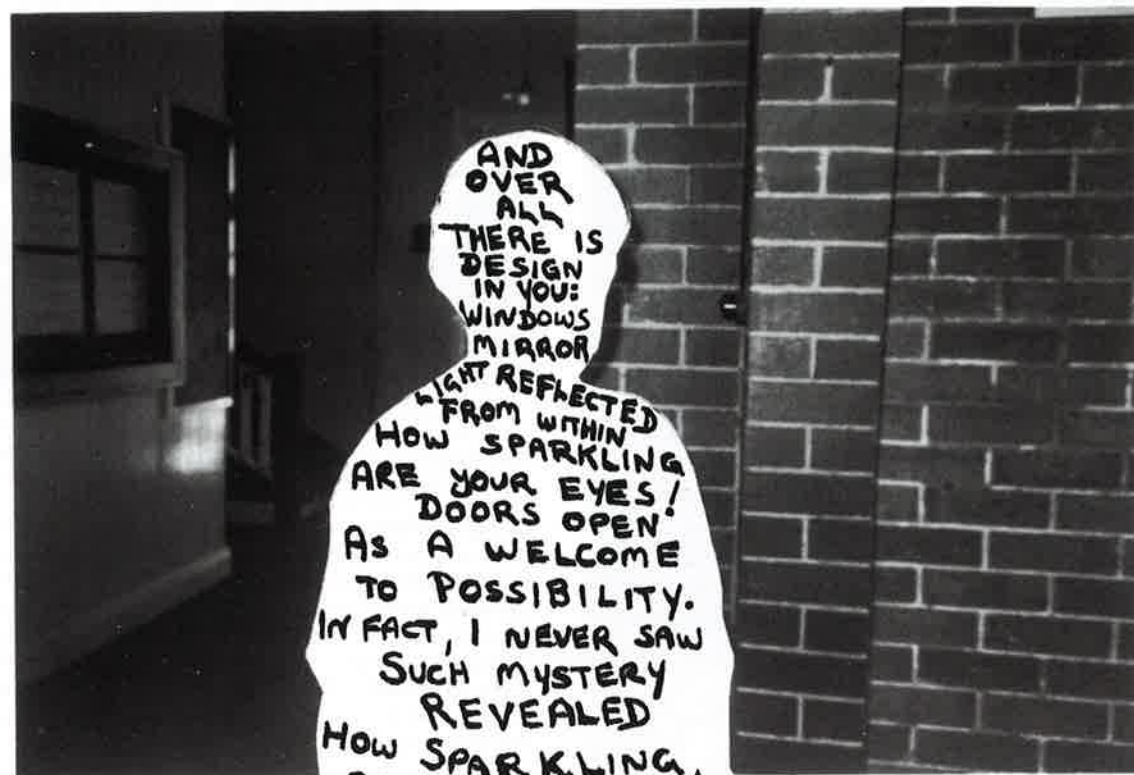 AND
OVER
ALL
THERE IS
DESIGN
IN YOU:
WINDOWS
MIRROR
LIGHT REFLECTED
FROM WITHIN
HOW SPARKLING
ARE YOUR EYES!
DOORS OPEN
AS A WELCOME
TO POSSIBILITY.
IN FACT, I NEVER SAW
SUCH MYSTERY
REVEALED
HOW SPARKLING